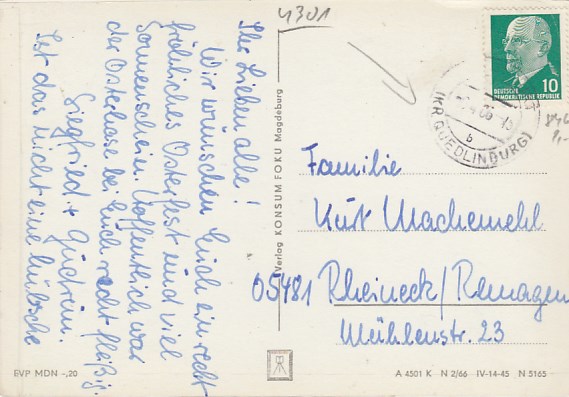 4301
Ihr Lieben alle!
Wir wünschen Euch ein recht
fröhliches Osterfest und viel
Sonnenschein. Hoffentlich war
der Osterhase bei Euch recht fleißig.
Siegfried + Gudrun.
Ist das nicht eine hübsche
Verlag KONSUM FOKU Magdeburg
DEUTSCHE
DEMOKRATISCHE REPUBLIK
10
(KR QUEDLINBURG)
b
Familie
Kurt Machemehl
05481 Rheineck/Remagen
Mühlenstr. 23
EVP MDN -,20
A 4501 K N 2/66 IV-14-45 N 5165